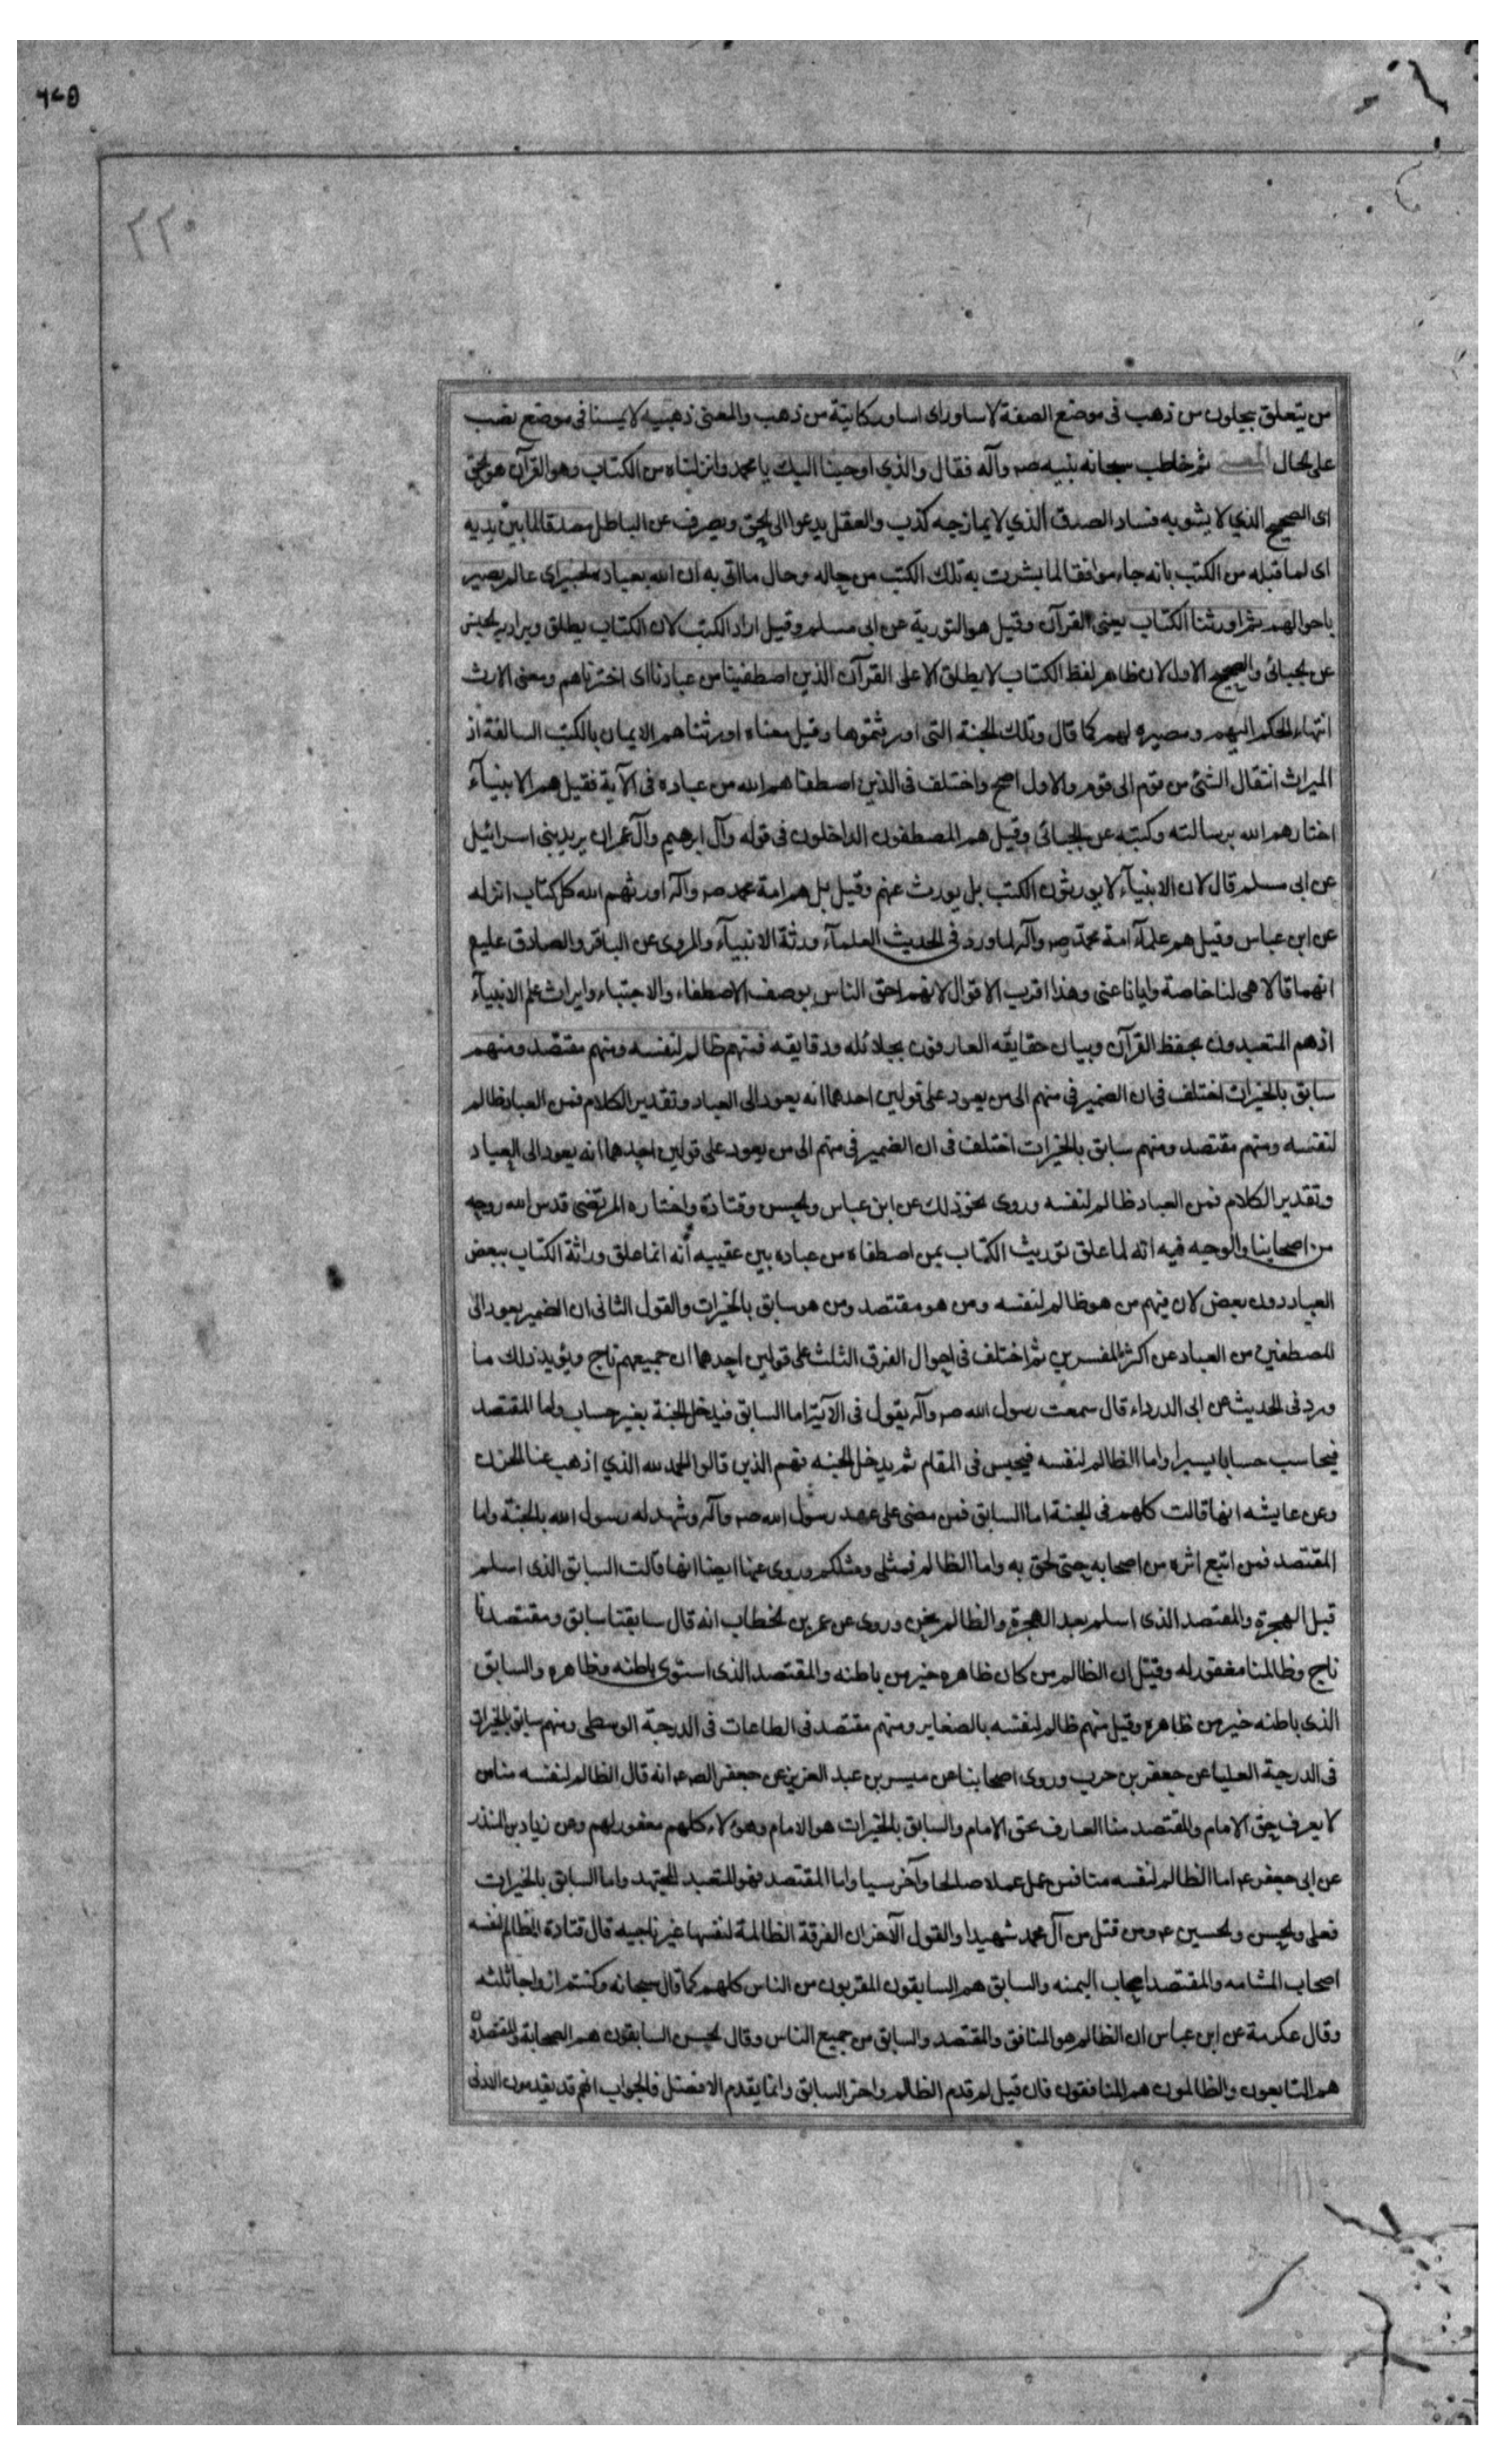 ٦٢٥
٢٢٠
من يتعلق بيحلون من ذهب فى موضع الصفة لاساور اى اساور كاينة من ذهب والمعنى ذهبيه لا يمسنا فى موضع نصب
على الحال المعنى ثم خاطب سبحانه نبيه صـ وآله فقال والذى اوحينا اليك يا محمد وانزلناه من الكتاب وهو القرآن هو الحق
اى الصحيح الذي لا يشوبه فساد الصدق الذي لا يمازجه كذب والعقل يدعوا الى الحق ويصرف عن الباطل مصدقا لما بين يديه
اى لما قبله من الكتب بانه جاء موافقا لما بشرت به تلك الكتب من حاله وحال ما اتى به ان الله بعباده لخبير اى عالم بصير
باحوالهم ثم اورثنا الكتاب يعنى القرآن وقيل هو التورية عن ابى مسلم وقيل اراد الكتب لان الكتاب يطلق ويراد به الجنس
عن الجبائى والصحيح الاول لان ظاهر لفظ الكتاب لا يطلق الا على القرآن الذين اصطفينا من عبادنا اى اخترناهم ومعنى الارث
انتهاء الحكم اليهم ومصيره لهم كما قال وتلك الجنة التى اورثتموها وقيل معناه اورثناهم الايمان بالكتب السالفة اذ
الميراث انتقال الشئ من قوم الى قوم والاول اصح واختلف فى الذين اصطفاهم الله من عباده فى الآية فقيل هم الانبيآء
اختارهم الله برسالته وكتبه عن الجبائى وقيل هم المصطفون الداخلون فى قوله وآل ابرهيم وآل عمران يريد بنى اسرائيل
عن ابى مسلم قال لان الانبيآء لا يورثون الكتب بل يورث عنهم وقيل بل هم امة محمد صـ وآله اورثهم الله كل كتاب انزله
عن ابن عباس وقيل هم علمآء امة محمد صـ وآله لما ورد فى الحديث العلمآء ورثة الانبيآء والمروى عن الباقر والصادق عليهم
انهما قالا هى لنا خاصة وايانا عنى وهذا اقرب الاقوال لانهم احق الناس بوصف الاصطفاء والاجتباء وايراث علم الانبيآء
اذ هم المتعبدون بحفظ القرآن وبيان حقايقه العارفون بجلائله ودقايقه فمنهم ظالم لنفسه ومنهم مقتصد ومنهم
سابق بالخيرات اختلف فى ان الضمير فى منهم الى من يعود على قولين احدهما انه يعود الى العباد وتقدير الكلام فمن العباد ظالم
لنفسه ومنهم مقتصد ومنهم سابق بالخيرات اختلف فى ان الضمير فى منهم الى من يعود على قولين احدهما انه يعود الى العباد
وتقدير الكلام فمن العباد ظالم لنفسه وروى نحو ذلك عن ابن عباس والحسن وقتادة واختاره المرتضى قدس الله روحه
من اصحابنا والوجه فيه انه لما علق توريث الكتاب بمن اصطفاه من عباده بين عقيبه أنه انما علق وراثة الكتاب ببعض
العباد دون بعض لان فيهم من هو ظالم لنفسه ومن هو مقتصد ومن هو سابق بالخيرات والقول الثانى ان الضمير يعود الى
المصطفين من العباد عن اكثر المفسرين ثم اختلف فى احوال الفرق الثلث على قولين احدهما ان جميعهم ناج ويؤيد ذلك ما
ورد فى الحديث عن ابى الدرداء قال سمعت رسول الله صـ وآله يقول فى الآية اما السابق فيدخل الجنة بغير حساب واما المقتصد
فيحاسب حسابا يسيرا واما الظالم لنفسه فيحبس فى المقام ثم يدخل الجنه فهم الذين قالوا الحمد لله الذي اذهب عنا الحزن
وعن عايشه انها قالت كلهم فى الجنة اما السابق فمن مضى على عهد رسول الله صـ وآله وشهد له رسول الله بالجنة واما
المقتصد فمن اتبع اثره من اصحابه حتى لحق به واما الظالم فمثلى ومثلكم وروى عنها ايضا انها قالت السابق الذى اسلم
قبل الهجرة والمقتصد الذى اسلم بعد الهجرة والظالم نحن وروى عن عمر بن الخطاب انه قال سابقنا سابق ومقتصدنا
ناج وظالمنا مغفور له وقيل ان الظالم من كان ظاهره خير من باطنه والمقتصد الذى استوى باطنه وظاهره والسابق
الذى باطنه خير من ظاهره وقيل منهم ظالم لنفسه بالصغاير ومنهم مقتصد فى الطاعات فى الدرجة الوسطى ومنهم سابق بالخيرات
فى الدرجة العليا عن جعفر بن حرب وروى اصحابنا عن ميسر بن عبد العزيز عن جعفر الصـ عـ انه قال الظالم لنفسه منا من
لا يعرف حق الامام والمقتصد منا العارف بحق الامام والسابق بالخيرات هو الامام وهؤلاء كلهم مغفور لهم وعن زياد بن المنذر
عن ابى جعفر عـ اما الظالم لنفسه منا فمن عمل عملا صالحا وآخر سيا واما المقتصد فهو المتعبد المجتهد واما السابق بالخيرات
فعلى والحسن والحسين عـ ومن قتل من آل محمد شهيدا والقول الآخر ان الفرقة الظالمة لنفسها غير ناجيه قال قتادة الظالم لنفسه
اصحاب المشامه والمقتصد اصحاب اليمنه والسابق هم السابقون المقربون من الناس كلهم كما قال سبحانه وكنتم ازواجا ثلثه
وقال عكرمة عن ابن عباس ان الظالم هو المنافق والمقتصد والسابق من جميع الناس وقال الحسن السابقون هم الصحابة والمقتصدون
هم التابعون والظالمون هم المنافقون فان قيل لم قدم الظالم واخر السابق وانما يقدم الافضل فالجواب انهم قد يقدمون الادنى